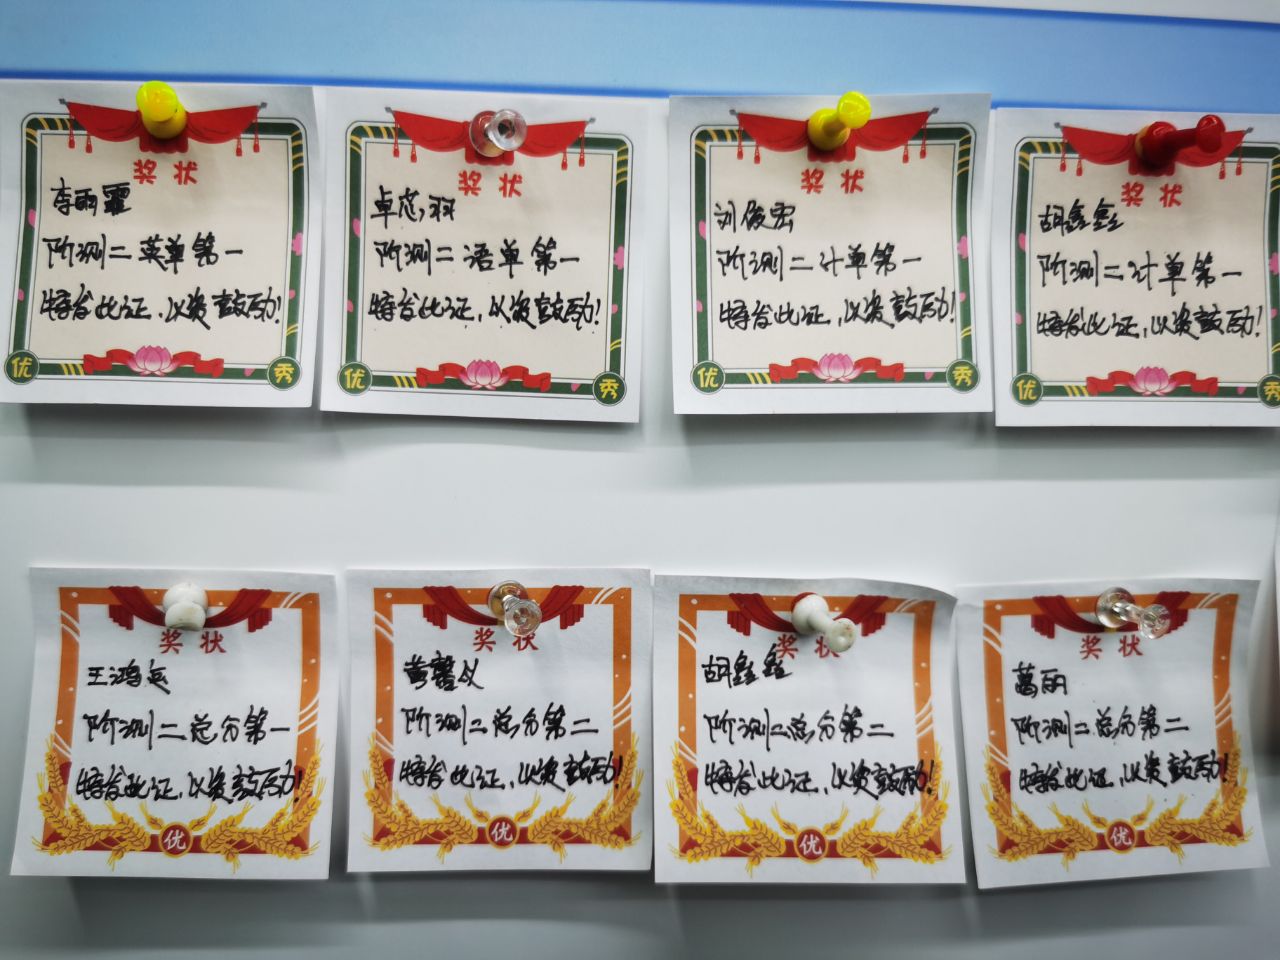 奖状
李雨霏
阶测二英单第一
特发此证，以资鼓励！
优 秀
奖状
卓芯羽
阶测二语单第一
特发此证，以资鼓励！
优 秀
奖状
刘俊宏
阶测二计单第一
特发此证，以资鼓励！
优 秀
奖状
胡鑫鑫
阶测二计单第一
特发此证，以资鼓励！
优 秀
奖状
王鸿运
阶测二总分第一
特发此证，以资鼓励！
优
奖状
黄馨仪
阶测二总分第二
特发此证，以资鼓励！
优
奖状
胡鑫鑫
阶测二总分第二
特发此证，以资鼓励！
优
奖状
葛丽
阶测二总分第二
特发此证，以资鼓励！
优